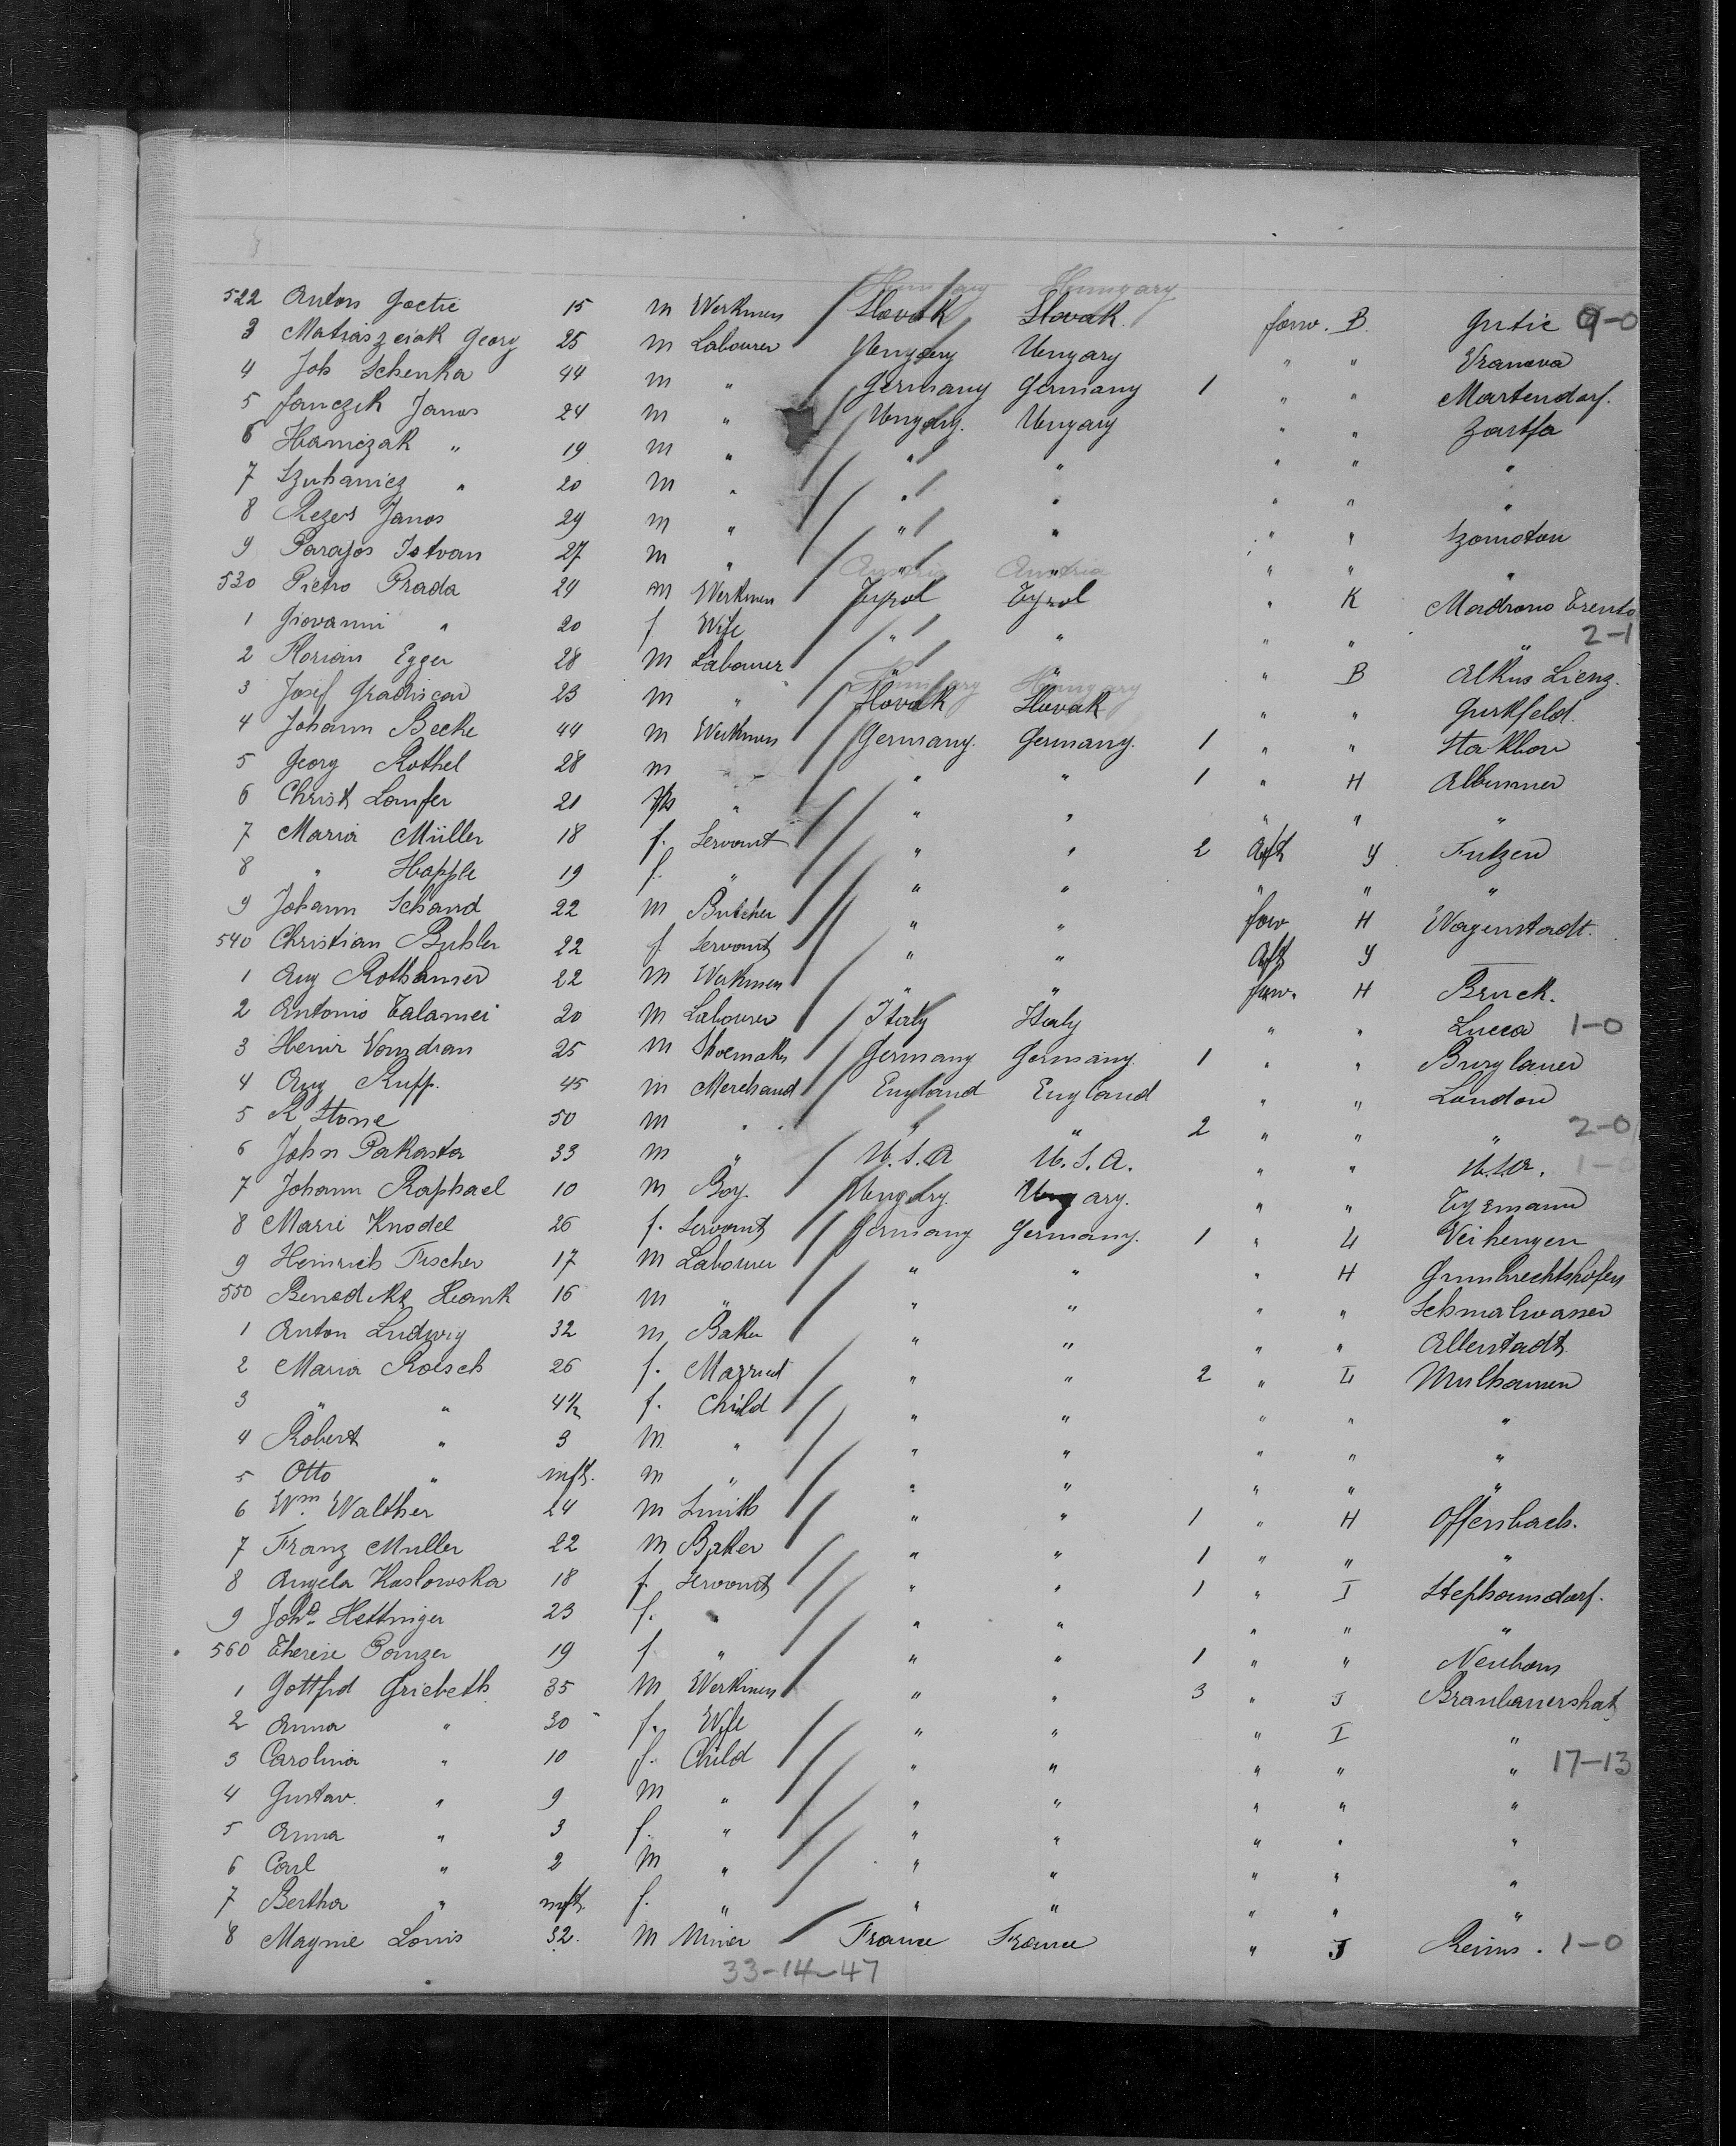 Hungary Hungary
522 Anton Goctic 15 m Werkmen Slovak Slovak. forw. B. Gutic 9-0
3 Matiaszciak Georg 25 m Labourer Ungary Ungary " " Vranova
4 Joh Schenka 44 m " Germany Germany 1 " " Martendorf.
5 Janczek Janos 24 m " Ungary. Ungary " " Zartfa
6 Hamiczak " 19 m " " " " " "
7 Szuhanicz " 20 m " " " " " "
8 Rezes Janos 29 m " " " " " Szomoton
9 Parajos Istvan 27 m " " " " " "
Austria Austria
530 Pietro Prada 24 m Werkmen Tyrol Tyrol " K Madrano Trento
1 Giovanni " 20 f Wife " " " " " 2-1
2 Florian Egger 28 m Labourer " " " B Alkus Lienz.
Hungary Hungary
3 Josif Gradiscar 23 m " Slovak Slovak " " Gurkfeld.
4 Johann Becke 44 m Werkmen Germany. Germany. 1 " " Stakbor
5 Georg Rothel 28 m " " " 1 " H Albunner
6 Christ Laufer 21 m " " " " " "
7 Maria Müller 18 f. Servant " " 2 Aft Y Futzen
8 " Happle 19 f. " " " " " "
9 Johann Schand 22 m Butcher " " forw H Wagenstadt.
540 Christian Buhler 22 f. Servant " " Aft Y —
1 Aug Rothamer 22 m Werkmen " " forw. H Bruck.
2 Antonio Talamei 20 m Labourer Italy Italy " " Lucca 1-0
3 Heinr Vonzdran 25 m Shoemakr Germany Germany. 1 " " Burglauer
4 Aug Ruff. 45 m Merchand England England " " London
5 R Stone 50 m " " " 2 " " " 2-0
6 John Pakasta 33 m " U.S.A U.S.A. " " U.S.A. 1-0
7 Johann Raphael 10 m Boy. Ungary. Ungary. " " Tyzmann
8 Marie Knodel 26 f. Servant Germany Germany. 1 " Y Veihengen
9 Heinrich Fischer 17 m Labourer " " " H Gumbrechtshofen
550 Benedikt Hank 16 m " " " " " Schmalwasser
1 Anton Ludwig 32 m. Baker " " " " Alberstadt
2 Maria Roesch 26 f. Married " " 2 " I Mulhausen
3 " " 4½ f. Child " " " " "
4 Robert " 3 m. " " " " " "
5 Otto " inft. m " " " " " "
6 Wm. Walther 24 m Smith " " 1 " H Offenbach.
7 Franz Muller 22 m Baker " " 1 " " "
8 Angela Kaslowska 18 f. Servant " " 1 " I Stephansdorf.
9 Joha Hettniger 23 f. " " " " " "
560 Therese Panzer 19 f. " " " 1 " " Neuham
1 Gottfrd Griebeth 35 m Werkmen " " 3 " J Braubauershat
2 Anna " 30 f. Wife " " " I "
3 Carolina " 10 f. Child " " " " " 17-13
4 Gustav " 9 m " " " " " "
5 Anna " 3 f. " " " " " "
6 Carl " 2 m " " " " " "
7 Bertha " inft. f. " " " " " "
8 Magnie Louis 32. m Miner France France " J Reims. 1-0
33-14-47